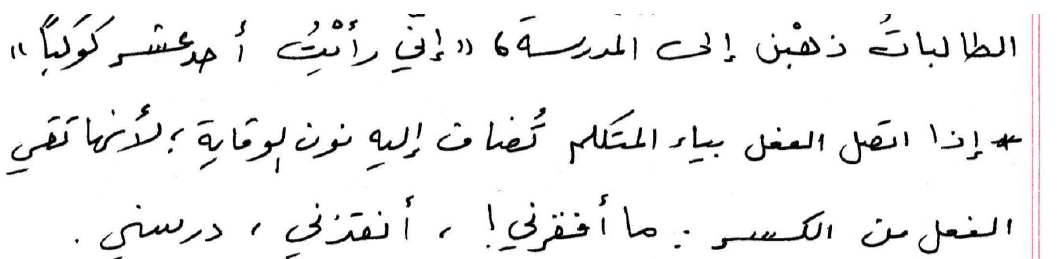 الطالباتُ ذهبْن إلى المدرسة، "إنّي رأيْتُ أحد عشر كوكبًا"
* إذا اتصل الفعل بياء المتكلم تُضاف إليه نون الوقاية؛ لأنها تقي
الفعل من الكسر: ما أفقرني!، أنقذني، درسني.